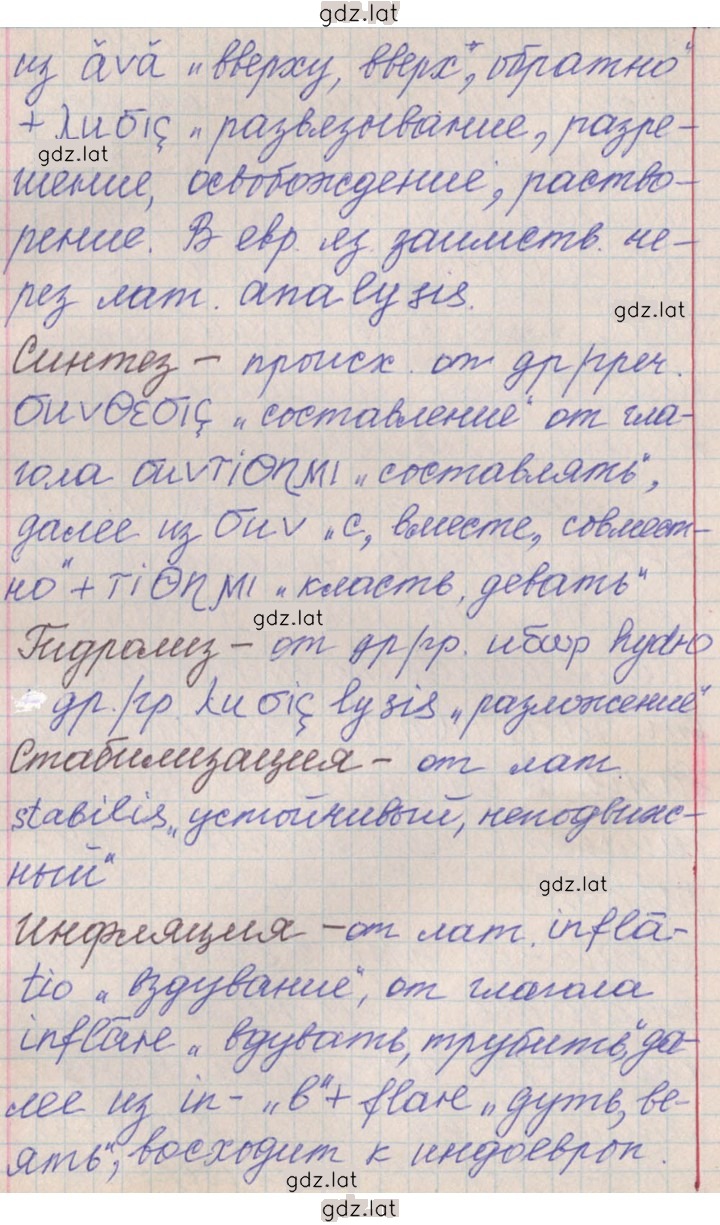 gdz.lat
из ἄνἄ „вверху, вверх“, „обратно“
+ λυσις „развязывание, разре-
gdz.lat
шение, освобождение“, раство-
рение. В евр. яз. заимств. че-
рез лат. analysis.
gdz.lat
Синтез – происх. от др/греч.
συνθεσις „составление“ от гла-
гола συντίθημι „составлять“,
далее из συν „с, вместе, совмест-
но“ + τίθημι „класть, девать“
gdz.lat
Гидролиз – от др/гр. hydro
др./гр. λυσις lysis „разложение“
Стабилизация – от лат.
stabilis „устойчивый, неподвиж-
ный“
gdz.lat
Инфляция – от лат. inflā-
tio „вздувание“, от глагола
inflāre „вдувать, трубить“, да-
лее из in- „в“ + flare „дуть, ве-
ять“, восходит к индоевроп.
gdz.lat
gdz.lat